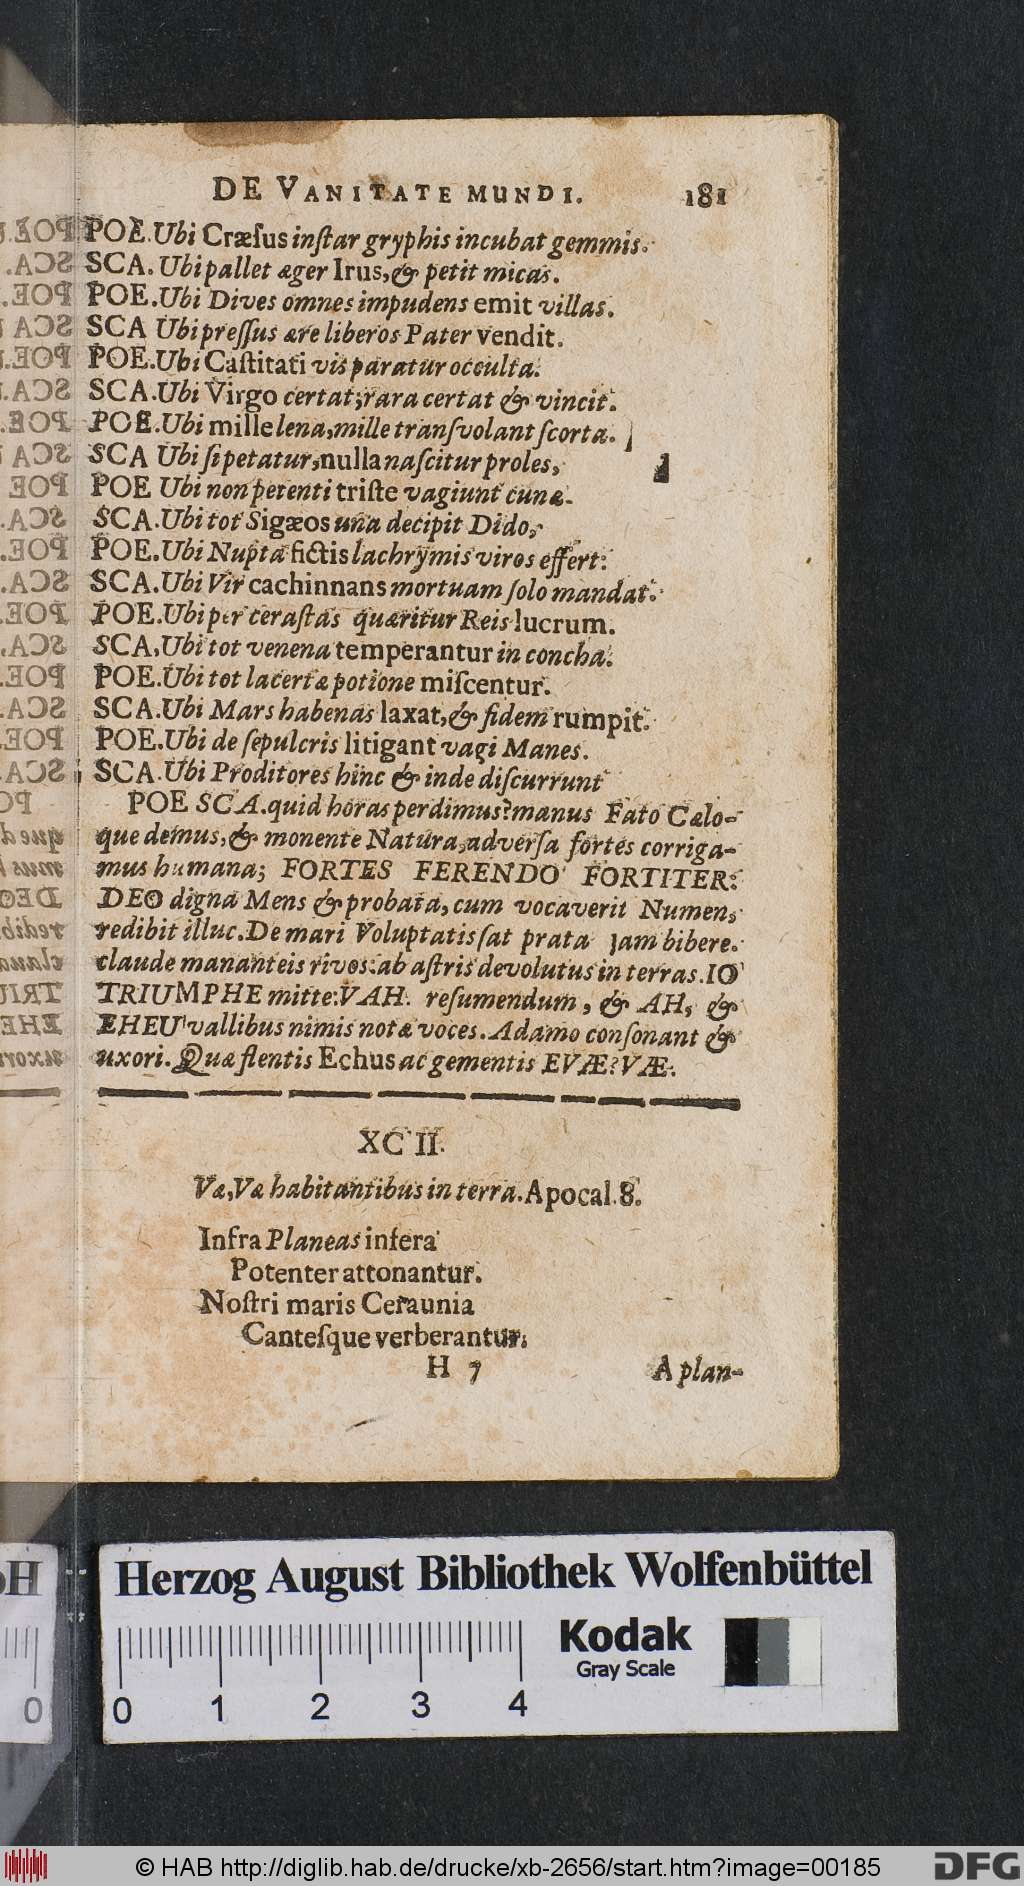 DE VANITATE MUNDI. 181
POE. Ubi Cræſus inſtar gryphis incubat gemmis.
SCA. Ubi pallet æger Irus, & petit micas.
POE. Ubi Dives omnes impudens emit villas.
SCA Ubi preſſus ære liberos Pater vendit.
POE. Ubi Caſtitati vis paratur occulta.
SCA. Ubi Virgo certat; rara certat & vincit.
POE. Ubi mille lena, mille tranſvolant ſcorta.
SCA Ubi ſi petatur, nulla naſcitur proles,
POE Ubi non petenti triſte vagiunt cunæ.
SCA. Ubi tot Sigæos una decipit Dido,
POE. Ubi Nupta fictis lachrymis viros effert.
SCA. Ubi Vir cachinnans mortuam ſolo mandat.
POE. Ubi per ceraſtas quæritur Reis lucrum.
SCA, Ubi tot venena temperantur in concha.
POE. Ubi tot lacertæ potione miſcentur.
SCA. Ubi Mars habenas laxat, & fidem rumpit.
POE. Ubi de ſepulcris litigant vagi Manes.
SCA. Ubi Proditores hinc & inde diſcurrunt
POE SCA. quid horas perdimus? manus Fato Cælo-
que demus, & monente Natura, adverſa fortes corriga-
mus humana; FORTES FERENDO FORTITER:
DEO digna Mens & probata, cum vocaverit Numen,
redibit illuc. De mari Voluptatis ſat prata jam bibere.
claude mananteis rivos: ab aſtris devolutus in terras. IO
TRIUMPHE mitte: VAH. reſumendum, & AH, &
EHEU vallibus nimis notæ voces. Adamo conſonant &
uxori. Quæ flentis Echus ac gementis EVÆ? VÆ.
XCII.
Væ, Væ habitantibus in terra. Apocal. 8.
Infra Planeas infera
Potenter attonantur.
Noſtri maris Ceraunia
Canteſque verberantur.
H 7 A plan-
Herzog August Bibliothek Wolfenbüttel
Kodak
Gray Scale
0 1 2 3 4
© HAB http://diglib.hab.de/drucke/xb-2656/start.htm?image=00185 DFG